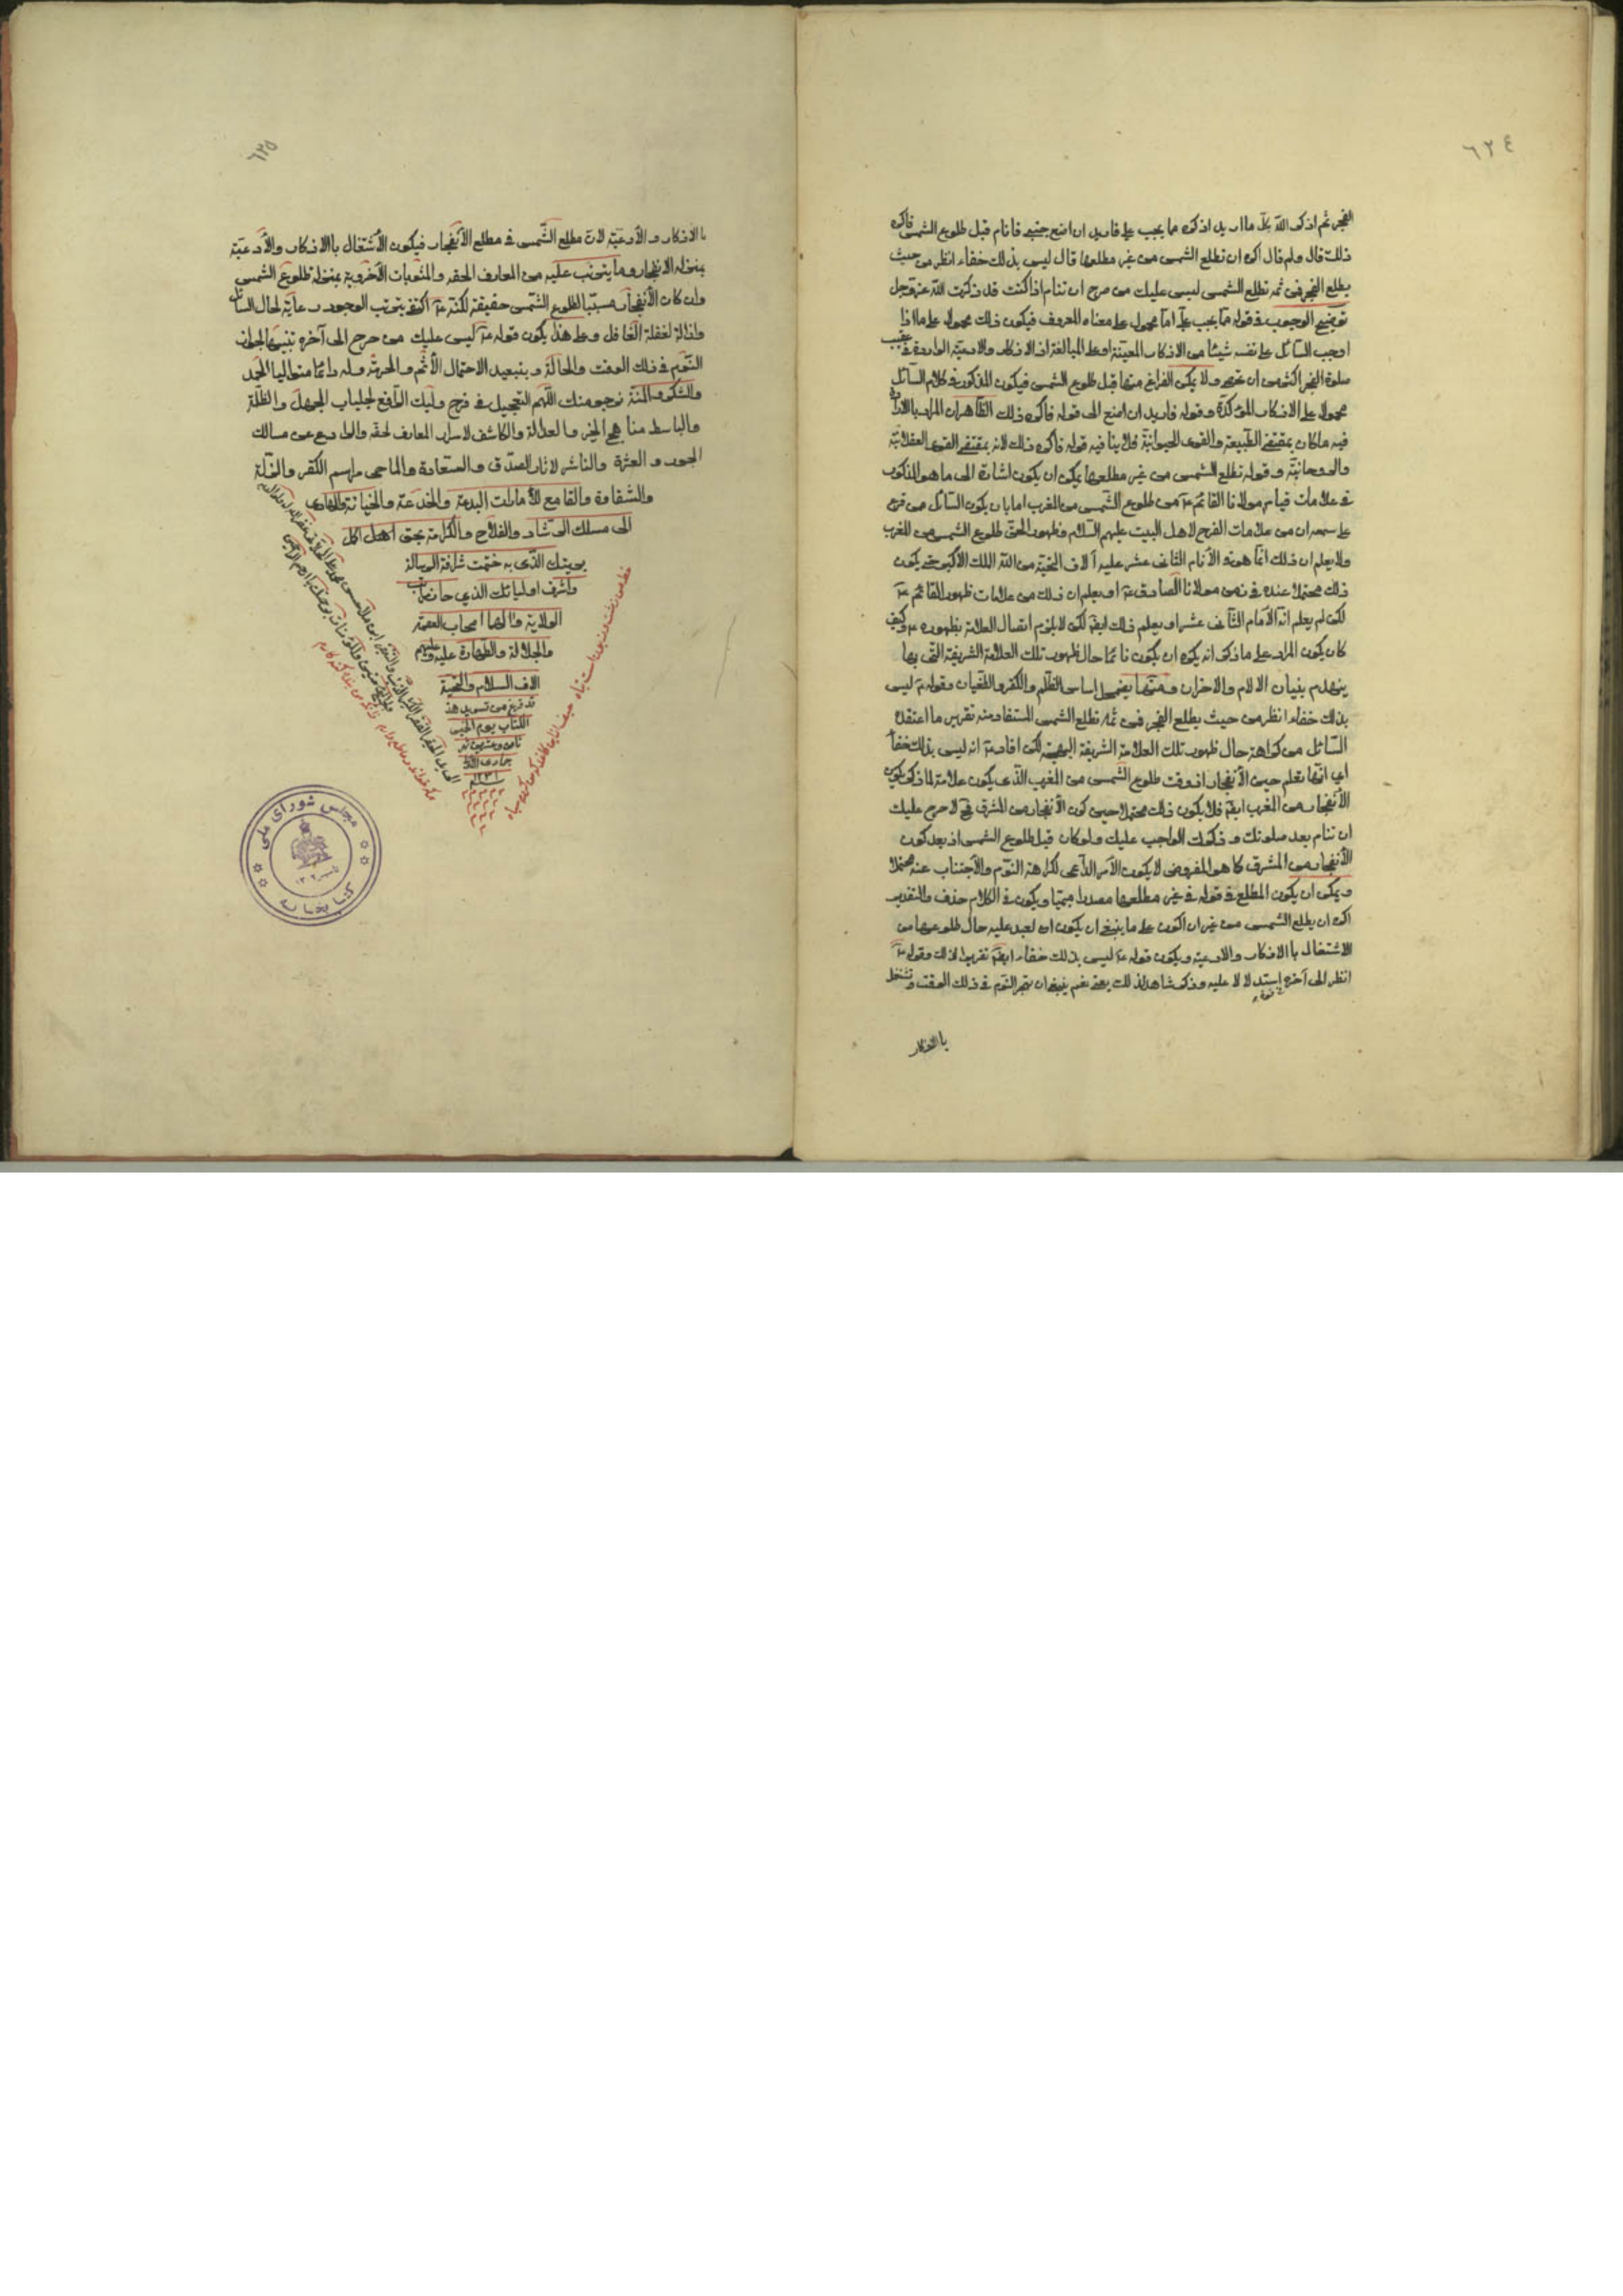 ٦٢٤
الفجر ثم اذكر الله بكل ما اريد اذكره مما يجب علي فاريد ان اضع جنبي فانام قبل طلوع الشمس فاكره
ذلك قال ولم قال اكره ان تطلع الشمس من غير مطلعها قال ليس بذلك خفاء انظر من حيث
يطلع الفجر فمن ثمه تطلع الشمس ليس عليك من حرج ان تنام اذا كنت قد ذكرت الله عز وجل
توضيح الوجوب في قوله مما يجب علي اما محمول على معناه المعروف فيكون ذلك محمولا على ما اذا
اوجب السائل على نفسه شيئا من الاذكار المعينة او على المبالغة اذ الاذكار والادعية الواردة في تعقيب
صلوة الفجر اكثر من ان تحصى ولا يمكن الفراغ منها قبل طلوع الشمس فيكون المذكور في كلام السائل
محمولا على الاذكار المؤكدة وقوله فاريد ان اضع الى قوله فاكره ذلك الظاهر ان المراد بالارادة
فيه ما كان بمقتضى الطبيعة والقوى الحيوانية فلا ينافيه قوله فاكره ذلك لانه بمقتضى القوى العقلانية
والروحانية وقوله تطلع الشمس من غير مطلعها يمكن ان يكون اشارة الى ما هو المذكور
في علامات قيام مولانا القائم عم من طلوع الشمس من المغرب اما بان يكون السائل ممن قرع
على سمعه ان من علامات الفرج لاهل البيت عليهم السلام وظهور الحق طلوع الشمس من المغرب
ولا يعلم ان ذلك انما هو في الامام الثاني عشر عليه آلاف التحية من الله الملك الاكبر حتى يكون
ذلك محتملا عنده في زمن مولانا الصادق عم او يعلم ان ذلك من علامات ظهور القائم عم
لكن لم يعلم انه الامام الثاني عشر او يعلم ذلك ايضا لكن لا يلزم اتصال العلامة بظهوره عم وكيف
كان يكون المراد على ما ذكر انه يكره ان يكون نائما حال ظهور تلك العلامة الشريفة التي بها
ينهدم بنيان الالام والاحزان ومنها يضمحل اساس الظلم والكفر والطغيان وقوله عم ليس
بذلك خفاء انظر من حيث يطلع الفجر فمن ثمه تطلع الشمس المستفاد منه تقرير ما اعتقده
السائل من كراهة حال ظهور تلك العلامة الشريفة البهية لكن افاد عم انه ليس بذلك خفاء
اي انها تعلم حين الانفجار اذ وقت طلوع الشمس من المغرب الذي يكون علامة لما ذكر يكون
الانفجار من المغرب ايضا فلا يكون ذلك محتملا حين كون الانفجار من المشرق فح لا حرج عليك
ان تنام بعد صلوتك وذكرك الواجب عليك ولو كان قبل طلوع الشمس اذ بعد كون
الانفجار من المشرق كما هو المفروض لا يكون الامر الداعي لكراهة النوم والاجتناب عنه محتملا
ويمكن ان يكون المطلع في قوله في غير مطلعها مصدرا ميميا ويكون في الكلام حذف والتقدير
اكره ان يطلع الشمس من غير ان اكون على ما ينبغي ان يكون العبد عليه حال طلوعها من
الاشتغال بالاذكار والادعية ويكون قوله عم ليس بذلك خفاء ايضا تقريرا لذلك وقوله عم
انظر الى آخره استدلالا عليه وذكر شاهد لذلك يعني نعم ينبغي ان يهجر النوم في ذلك الوقت وتشتغل
بالاذكار
٦٢٥
بالاذكار والادعية لان مطلع الشمس في مطلع الانفجار فيكون الاشتغال بالاذكار والادعية
بمنزلة الانفجار وما يترتب عليه من المعارف الحقه والمثوبات الاخروية بمنزلة طلوع الشمس
وان كان الانفجار مسببا لطلوع الشمس حقيقة لكنه عم اكتفى بترتب الوجود رعاية لحال السائل
وازالة لغفلة الغافل وعلى هذا يكون قوله عم ليس عليك من حرج الى آخره تنبيها لجواز
النوم في ذلك الوقت والحالة وبتبعيد الاحتمال الاثم والحرمة وله دائما متواليا الحمد
والشكر والمنة نرجو منك اللهم التعجيل في فرج وليك الرافع لجلباب الجهل والظلة
والباسط مناهج الخير والعدالة والكاشف لاسرار المعارف لحقه والرادع عن مسالك
الجور والعثرة والناشر لاثار الصدق والسعادة والماحي مراسم الكفر والذلة
والشقاوة والقامع لأمارات البدعة والخدعة والخيانة والهادي
الى مسلك الرشاد والفلاح والكرامة بحق اهمل اكل
بريتك الذي به ختمت شرافة الرسالة
واشرف اوليائك الذي حاز مراتب
الولاية والهما اصحاب العصمة
والجلالة والطهارة عليه وعليهم
الاف السلام والتحية
قد فرغ من تسويد هذ
الكتاب يوم الخميس
ثامن وعشرين شهر
جمادى الثاني
سنة ١٢٣١
مجلس شورای ملی
کتابخانه